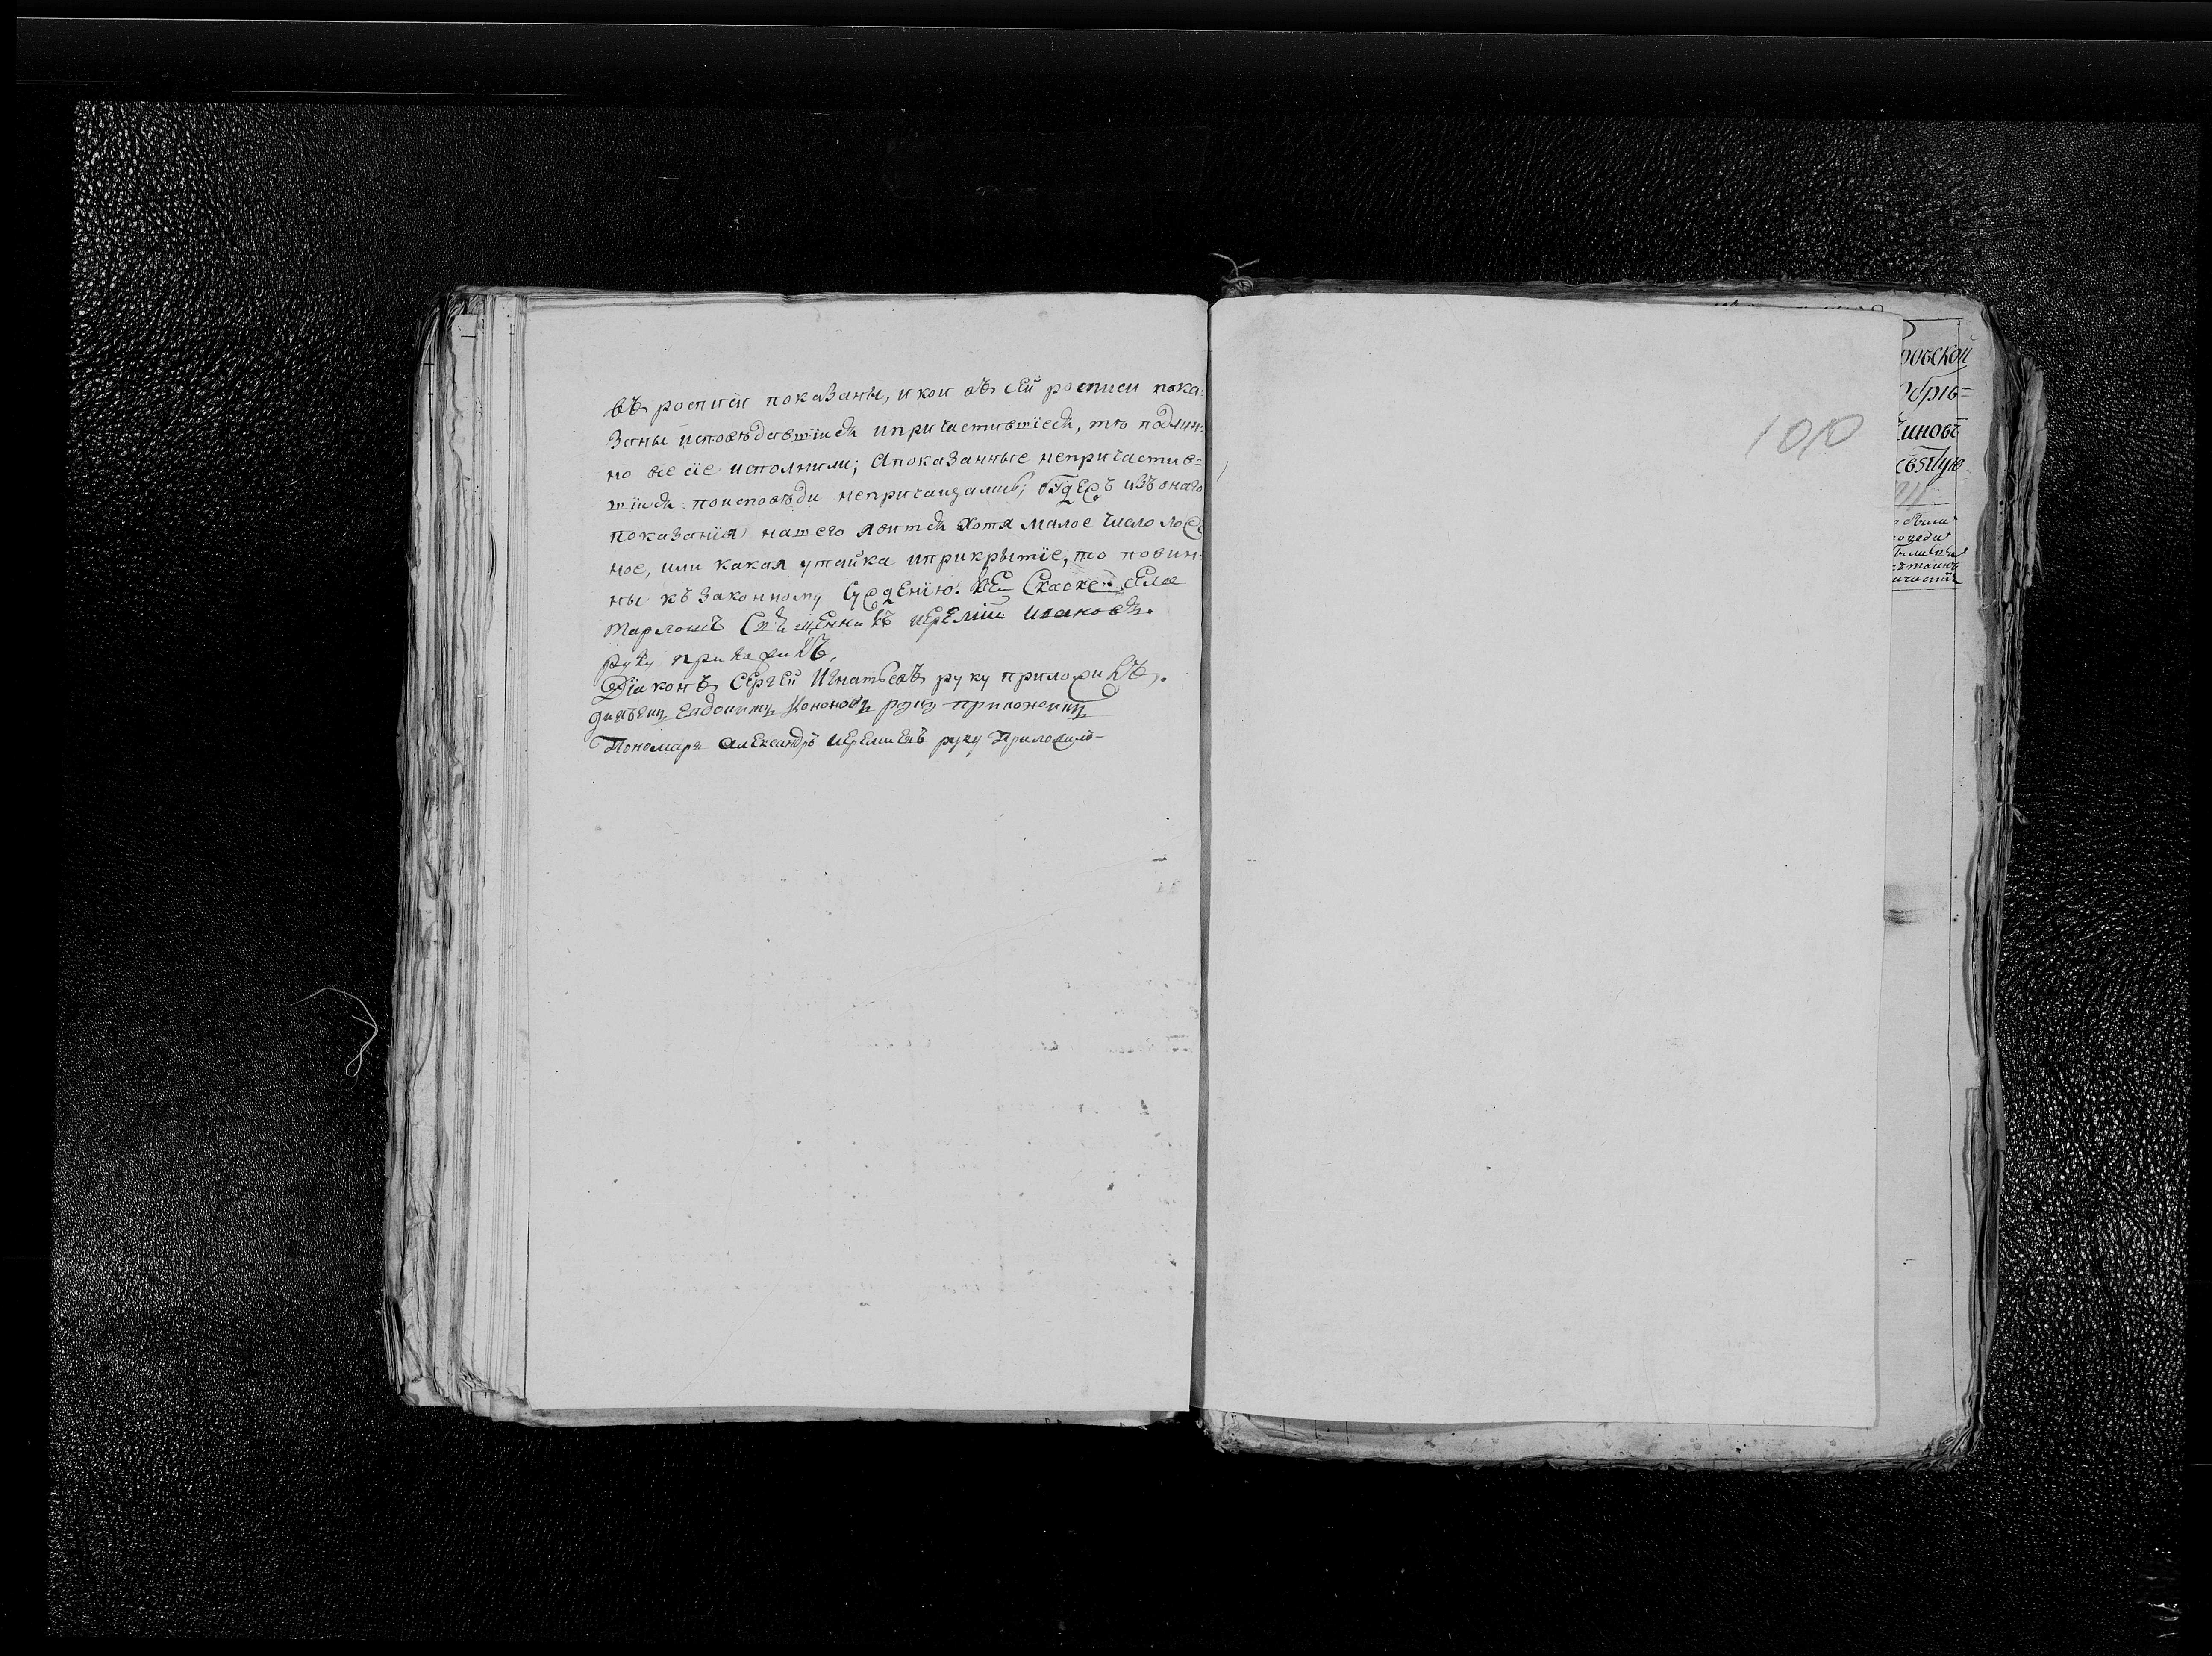 въ росписи показаны, и кои въ сей росписи пока:
заны исповѣдавшїися и причастившїеся, то подлин:
но все сїе исполнили; А показанные непричастив=
шїися по исповѣди непричащались; будежъ изъ онаго
показанїя нашего явится хотя малое число лож
ное, или какая утайка и прикрытїе, то повин:
ны къ законному сужденїю. Къ Сей Скаске села
Священникъ Иеремїи Иваковъ.
руку приложилъ,
Дїаконъ Сергѣй Игнатьевъ руку приложилъ.
дьячекъ Евдокимъ Кононовъ руку приложилъ
Пономарь Александръ Иеремиевъ руку Приложилъ-
1010
ровской
обрѣ=
чиновъ
были